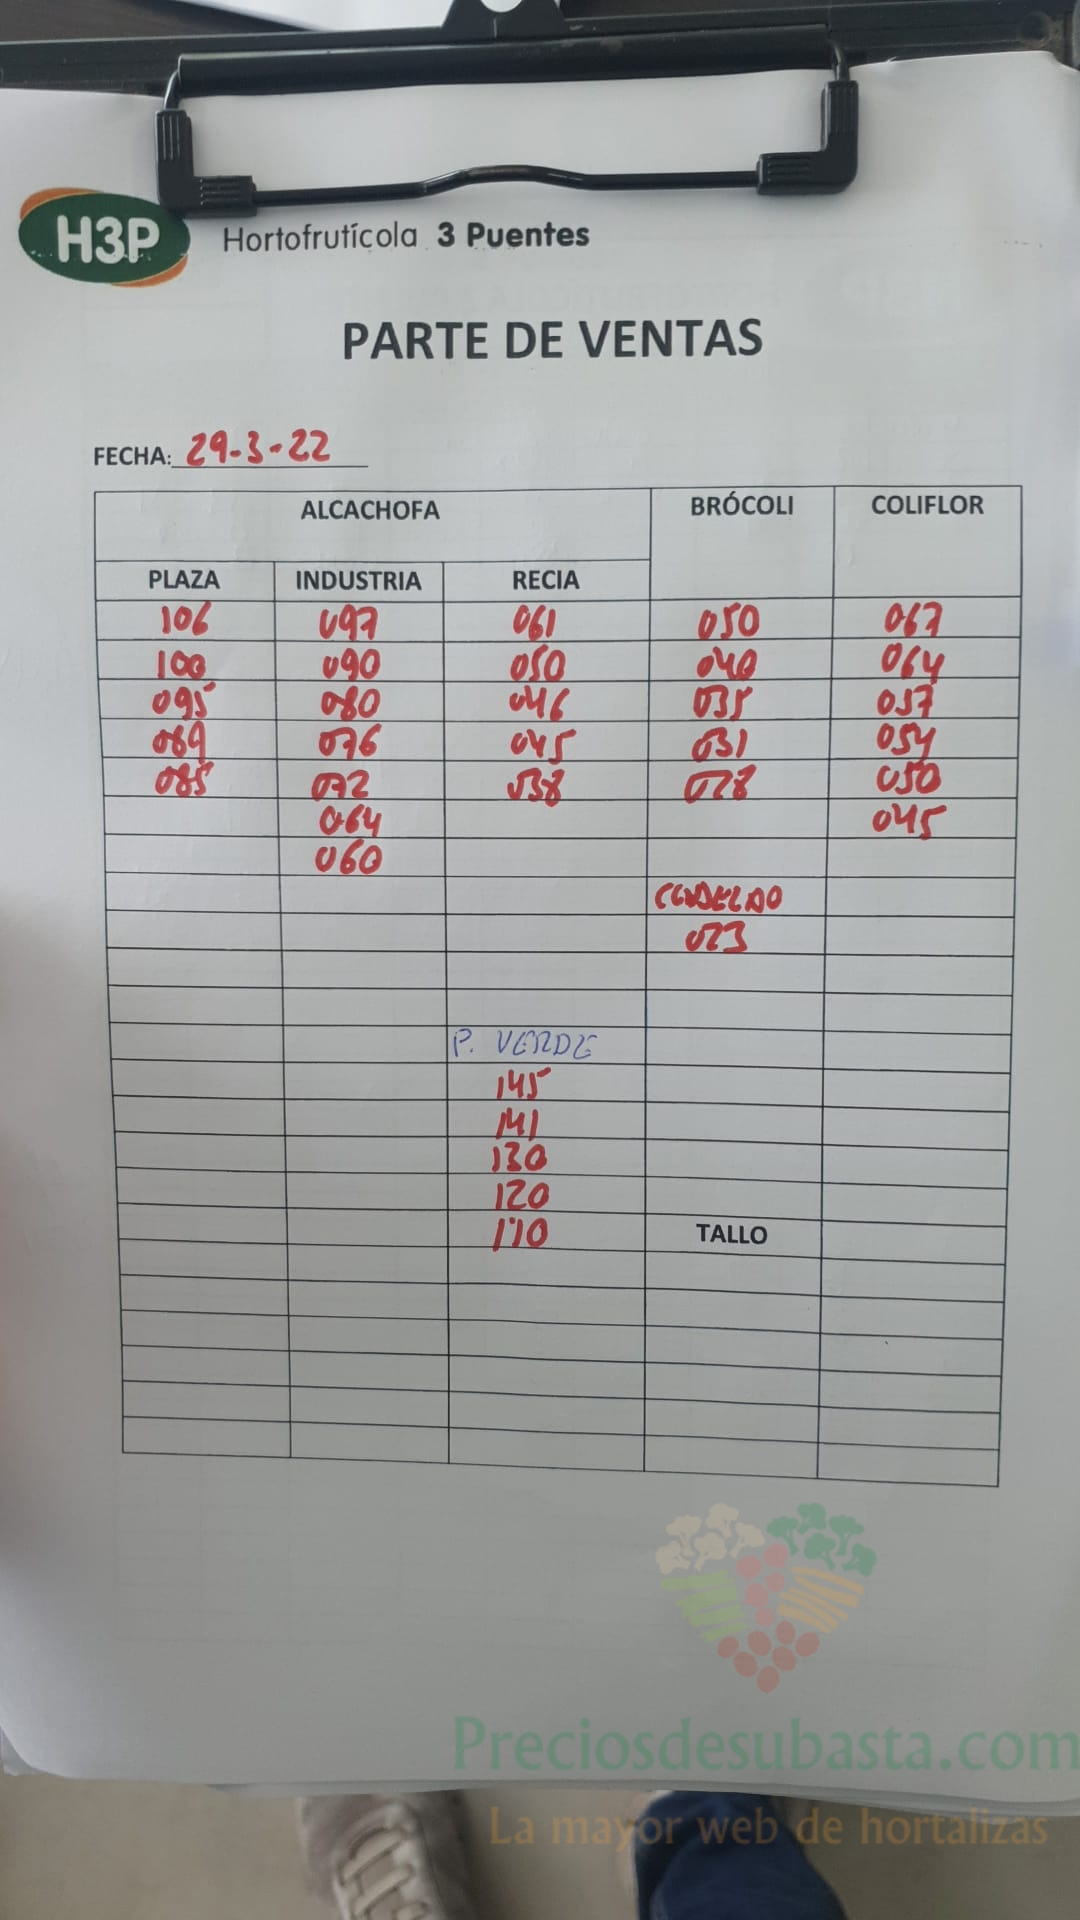 H3P Hortofrutícola 3 Puentes
PARTE DE VENTAS
FECHA: 29-3-22
ALCACHOFA BRÓCOLI COLIFLOR
PLAZA INDUSTRIA RECIA
106 097 061 050 067
100 090 050 040 064
095 080 046 035 057
089 076 045 031 054
085 072 038 028 050
064 045
060
023
P. VERDE
145
141
130
120
110 TALLO
Preciosdesubasta.com
La mayor web de hortalizas